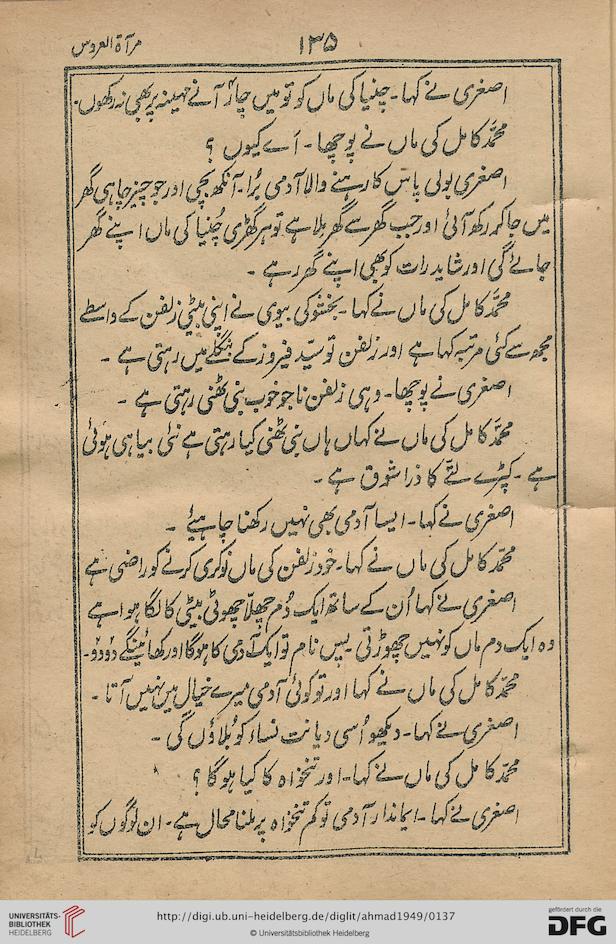 مرآۃ العروس
۱۳۵
اصغری نے کہا۔ چنیا کی ماں کو تو میں چار آنے مہینہ پر بھی نہ رکھوں۔
محمد کامل کی ماں نے پوچھا۔ اے کیوں ؟
اصغری بولی پاس کا رہنے والا آدمی بُرا۔ آنکھ بچی اور جو چیز چاہی گھر
میں جا کر رکھ آئی اور جب گھر سے گھر ملا ہے تو ہر گھڑی چُنیا کی ماں اپنے گھر
جائے گی اور شاید رات کو بھی اپنے گھر رہے ۔
محمد کامل کی ماں نے کہا۔ بخشو کی بیوی نے اپنی بیٹی زلفن کے واسطے
مجھ سے کئی مرتبہ کہا ہے اور زلفن تو سید فیروز کے بنگلے میں رہتی ہے ۔
اصغری نے پوچھا۔ وہی زلفن نا جو خوب بنی ٹھنی رہتی ہے ۔
محمد کامل کی ماں نے کہا ں ہاں بنی ٹھنی کیا رہتی ہے نئی بیاہی ہوئی
ہے ۔ کپڑے لتّے کا ذرا شوق ہے ۔
اصغری نے کہا۔ ایسا آدمی بھی نہیں رکھنا چاہیئے ۔
محمد کامل کی ماں نے کہا۔ خود زلفن کی ماں نوکری کرنے کو راضی ہے
اصغری نے کہا اُن کے ساتھ ایک دُم چھلّا چھوٹی بیٹی کا لگا ہوا ہے
وہ ایک دم ماں کو نہیں چھوڑتی بس نام تو ایک آدمی کا ہوگا اور کھائینگے دو دو۔
محمد کامل کی ماں نے کہا اور تو کوئی آدمی میرے خیال میں نہیں آتا ۔
اصغری نے کہا۔ دیکھو اُسی دیانت نساء کو بُلاؤں گی ۔
محمد کامل کی ماں نے کہا۔ اور تنخواہ کا کیا ہو گا ؟
اصغری نے کہا۔ ایماندار آدمی تو کم تنخواہ پر ملنا محال ہے۔ ان لوگوں کو
UNIVERSITÄTS-
BIBLIOTHEK
HEIDELBERG
http://digi.ub.uni-heidelberg.de/diglit/ahmad1949/0137
© Universitätsbibliothek Heidelberg
gefördert durch die
DFG